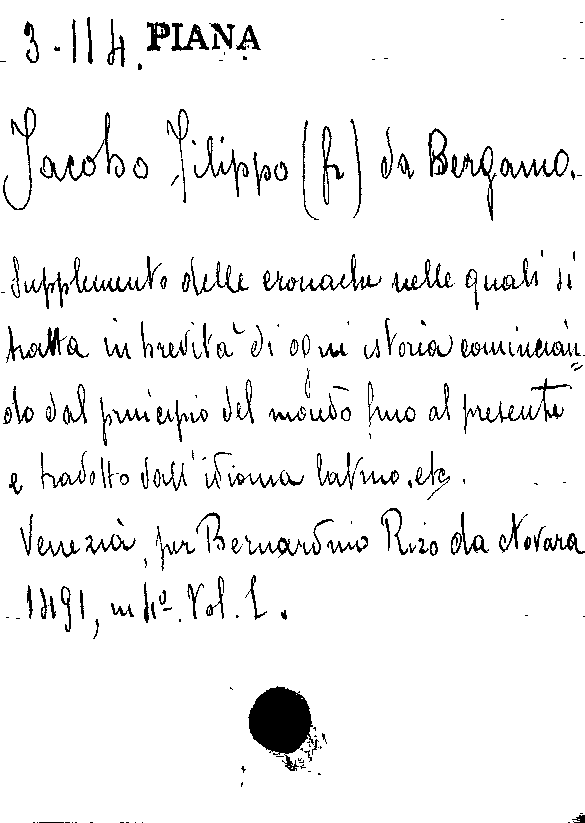 3-114. PIANA
Jacobo Filippo (fr) da Bergamo.
Supplemento delle cronache nelle quali si
tratta in brevità di ogni istoria comincian=
do dal principio del mondo fino al presente
e tradotto dall'idioma latino. etc.
Venezia, per Bernardino Rizo da Novara
1491, in 4º. Vol. 1.